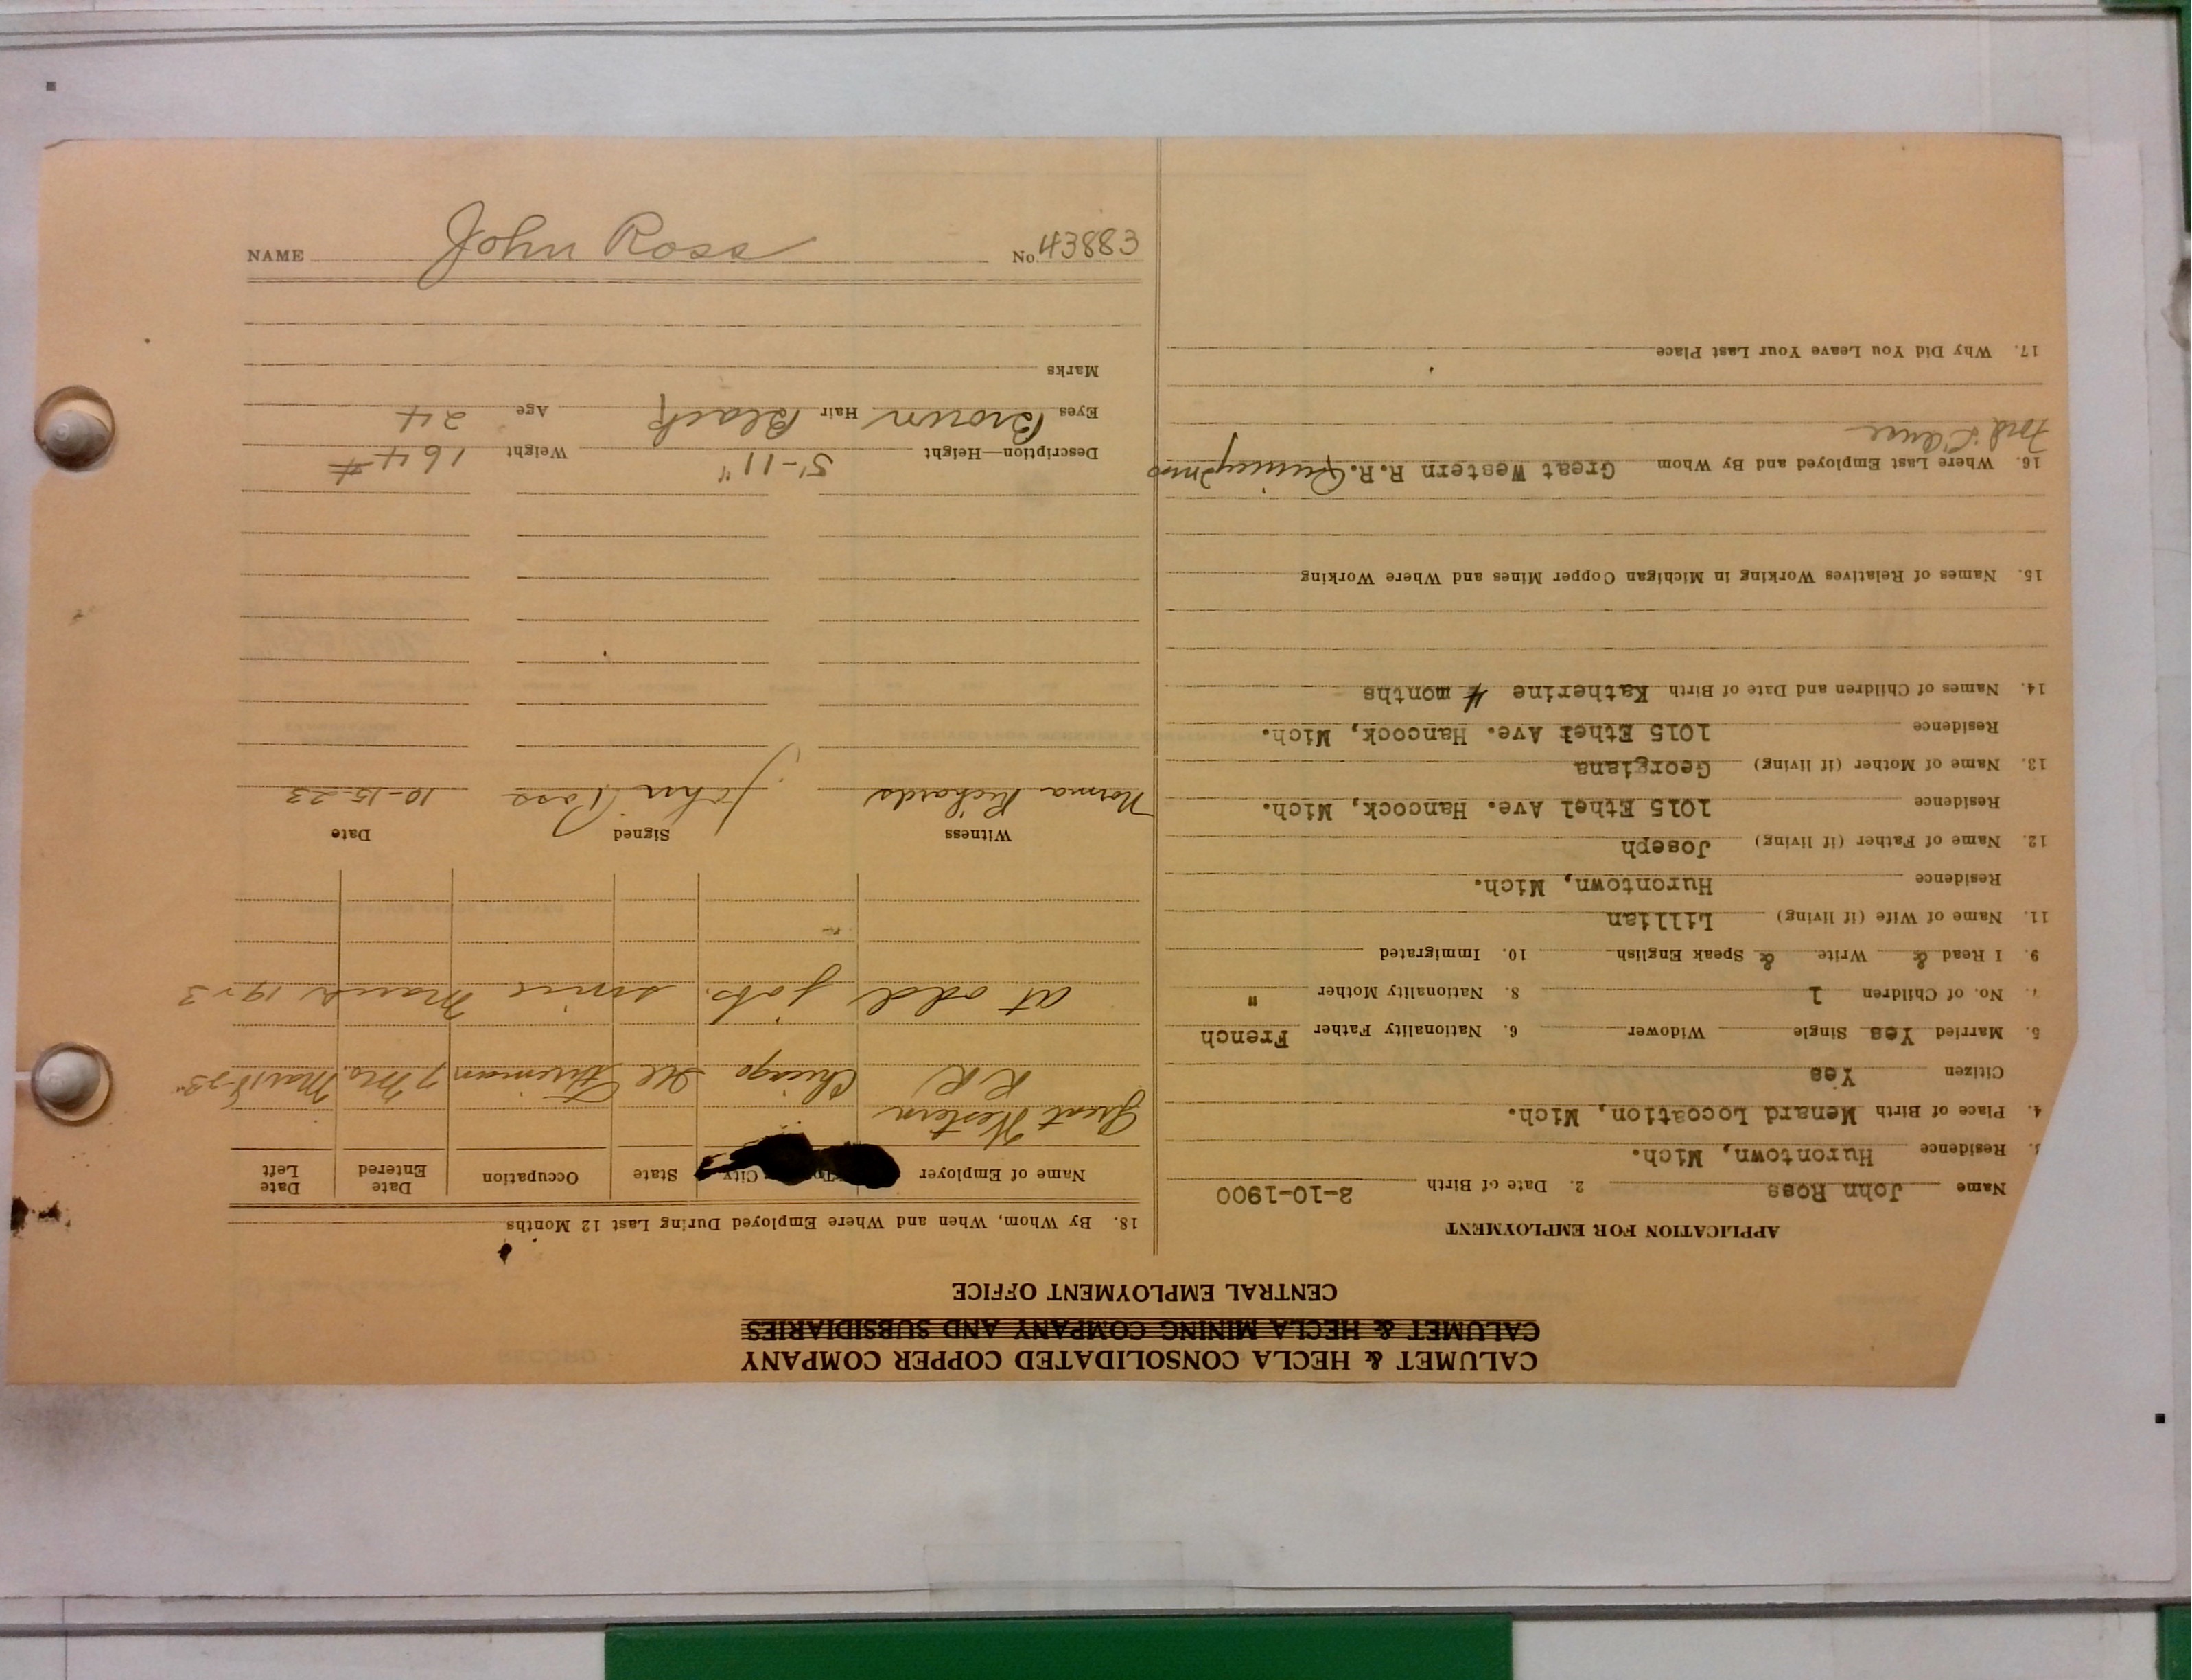 CALUMET & HECLA CONSOLIDATED COPPER COMPANY
CALUMET & HECLA MINING COMPANY AND SUBSIDIARIES
CENTRAL EMPLOYMENT OFFICE
APPLICATION FOR EMPLOYMENT
Name John Ross 2. Date of Birth 3-10-1900
3. Residence Hurontown, Mich.
4. Place of Birth Menard Locoation, Mich.
Citizen Yes
5. Married Yes Single Widower 6. Nationality Father French
7. No. of Children 1 8. Nationality Mother "
9. I Read & Write & Speak English 10. Immigrated
11. Name of Wife (if living) Lillian
Residence Hurontown, Mich.
12. Name of Father (if living) Joseph
Residence 1015 Ethel Ave. Hancock, Mich.
13. Name of Mother (if living) Georgiana
Residence 1015 Ethel Ave. Hancock, Mich.
14. Names of Children and Date of Birth Katherine 4 months
15. Names of Relatives Working in Michigan Copper Mines and Where Working
16. Where Last Employed and By Whom Great Western R.R. Quincy
17. Why Did You Leave Your Last Place
18. By Whom, When and Where Employed During Last 12 Months
Name of Employer City State Occupation Date Entered Date Left
Great Western
RR Chicago Ill Fireman 7 Mo. Mar
at odd jobs since March 1923
Witness Signed Date
Norma Richards John Ross 10-15-23
Description—Height 5'-11" Weight 164 #
Eyes Brown Hair Black Age 24
Marks
NAME John Ross No. 43883